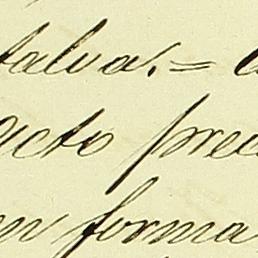 talva. =
acto prec
en forma